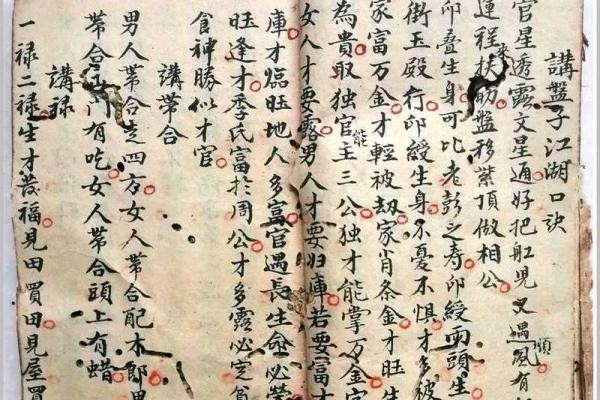 講盤子江湖口訣
官星透露文星通好把舡児又遇風有
順
運程扶助盤移紫頂做相公
來
印叠生身可比老彭之寿印綬両頭生
街玉殿行印綬生身不憂不惧才多被
家富万金才輕被刼家肖条金才旺生
為貴取独官主三公独才能掌万金
能
女人才要露男人才要归庫若要富才
庫才臨旺地人多富官遇長生命必荣
旺逢才季氏富於周公才多露必定貧
食神勝似才官
講帶合
男人帶合走四方女人帶合配木郎男
帶合門有吃女人帶合頭上有蜡
講禄
一禄二禄生才發福見田買田見屋買